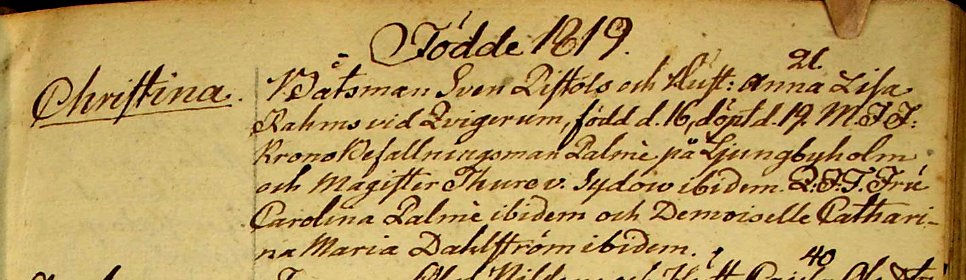 Födde 1819.
Christina.
21
Båtsman Sven Pistols och Hust: Anna Lisa
Rahms vid Qvigerum, född d. 16, döpt d. 19. M.F.F:
KronoBefallningsman Palmè på Ljungbyholm
och Magister Thure v. Sydow ibidem. Q.F.F. Fru
Carolina Palmè ibidem och Demoiselle Cathari-
na Maria Dahlström ibidem.
40